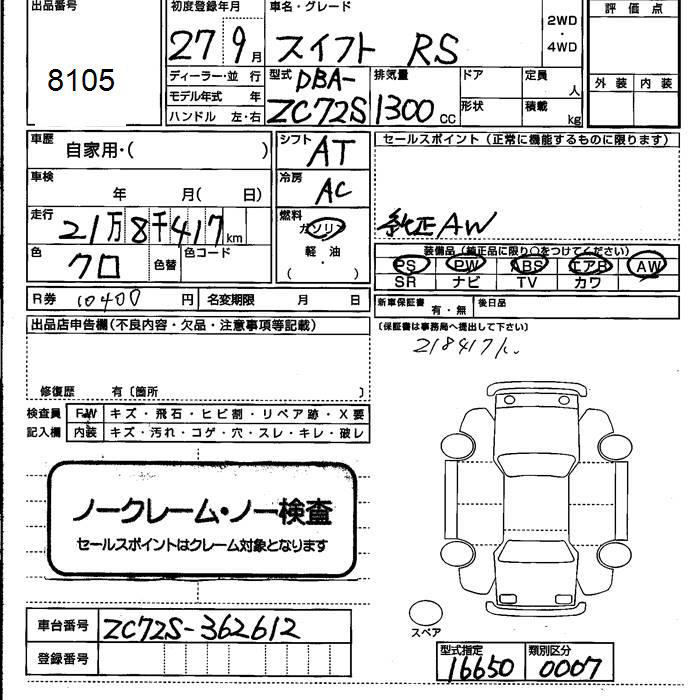 出品番号 初度登録年月 車名・グレード 評価点
8105 27 9月 スイフト RS 2WD・4WD
ディーラー・並行 型式 排気量 ドア 定員 人 外装 内装
モデル年式 年 DBA-
ハンドル 左・右 ZC72S 1300cc 形状 積載 kg
車歴 自家用・( ) シフト AT セールスポイント(正常に機能するものに限ります)
車検 年 月( 日) 冷房 AC
走行 21万8千417km 燃料 ガソリン 純正AW
色 クロ 色替 色コード 軽油 (・) 装備品(純正品に限り○をつけてください)
PS PW ABS エアB AW
SR ナビ TV カワ
R券 10400円 名変期限 月 日 新車保証書 有・無 後日品
出品店申告欄(不良内容・欠品・注意事項等記載) (保証書は事務局へ提出して下さい)
218417k
修復歴 有〔箇所 〕
検査員 F.W キズ・飛石・ヒビ割・リペア跡・X要
記入欄 内装 キズ・汚れ・コゲ・穴・スレ・キレ・破レ
ノークレーム・ノー検査
セールスポイントはクレーム対象となります
スペア
車台番号 ZC72S-362612
登録番号
型式指定 類別区分
16650 0007